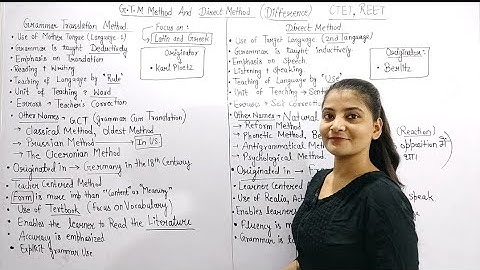 G.T.M Method And Direct Method (Difference) CTET, REET
Grammar Translation Method
• Use of Mother Tongue (Language-1)
• Grammar is taught Deductively
• Emphasis on Translation
• Reading + Writing
• Teaching of Language by "Rule"
• Unit of Teaching → Word
• Errors → Teacher's Correction
Other Names → G.C.T (Grammar Cum Translation)
→ Classical Method, Oldest Method
→ Prussian Method → In US
→ The Ciceronian Method
• Originated in → Germany in the 18th Century
• Teacher Centered Method
• Form is more imp than "Content" or "Meaning"
• Use of Textbook (Focus on Vocabulary)
• Enables the learner to Read the Literature
• Accuracy is emphasized
• Explicit grammar Use
Focus on :
Latin and Greek
Originator
• Karl Ploetz
Direct Method
• Use of Target Language (2nd language)
• Grammar is taught Inductively
• Emphasis on Speech
• Listening + Speaking
• Teaching of Language by "Use"
• Unit of Teaching → Sent
• Errors → Self Correction
Other Names → Natural
→ Reform Method
→ Phonetic Method, Be
→ Antigrammatical Meth
→ Psychological Method
• Originated in → F
• Learner Centered
• Use of Realia, Ac
• Enables learners
speak
• Fluency is m
• Grammar is t
Originator :
• Berlitz
(Reaction)
opposition में
था